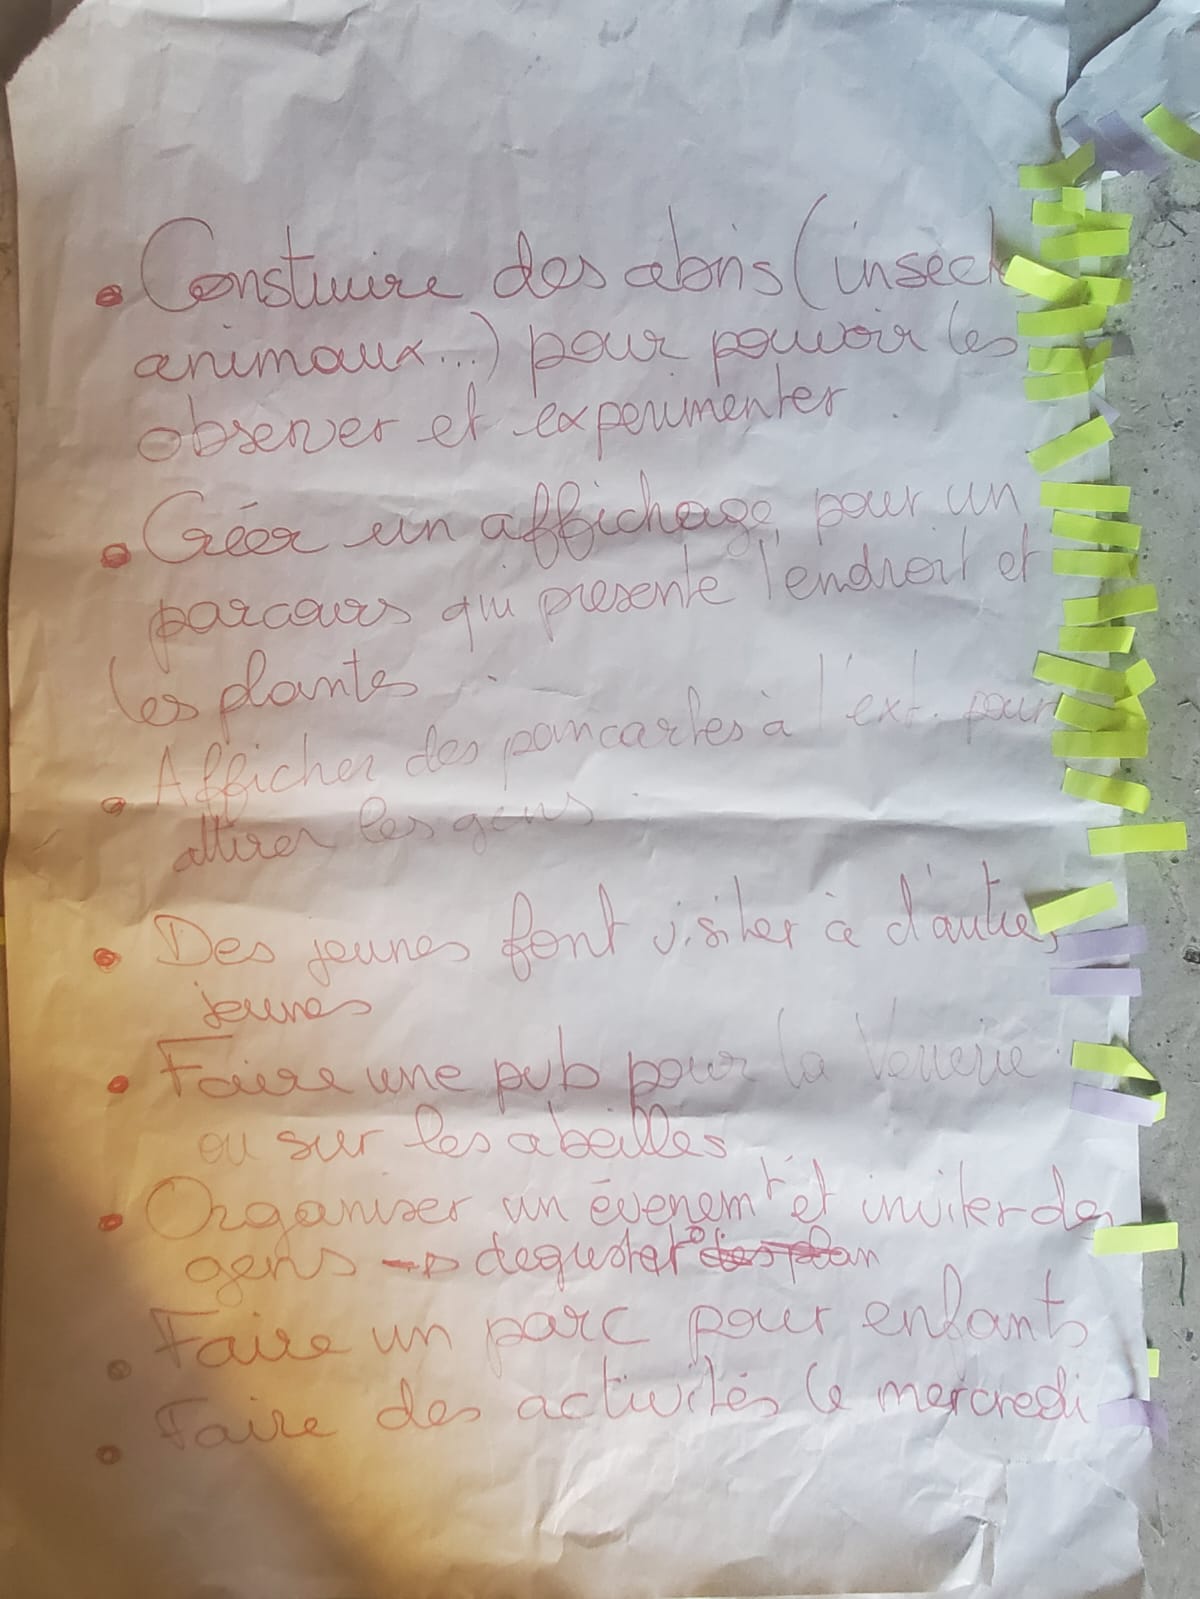 • Construire des abris (insect
animaux...) pour pouvoir les
observer et experimenter
• Créer un affichage pour un
parcours qui presente l'endroit et
les plantes
• Afficher des pancartes à l'ext. pour
attirer les gens
• Des jeunes font visiter à d'autres
jeunes
• Faire une pub pour la Verrerie
ou sur les abeilles
• Organiser un évenemt et inviter des
gens → deguster des plan
• Faire un parc pour enfants
• Faire des activités le mercredi